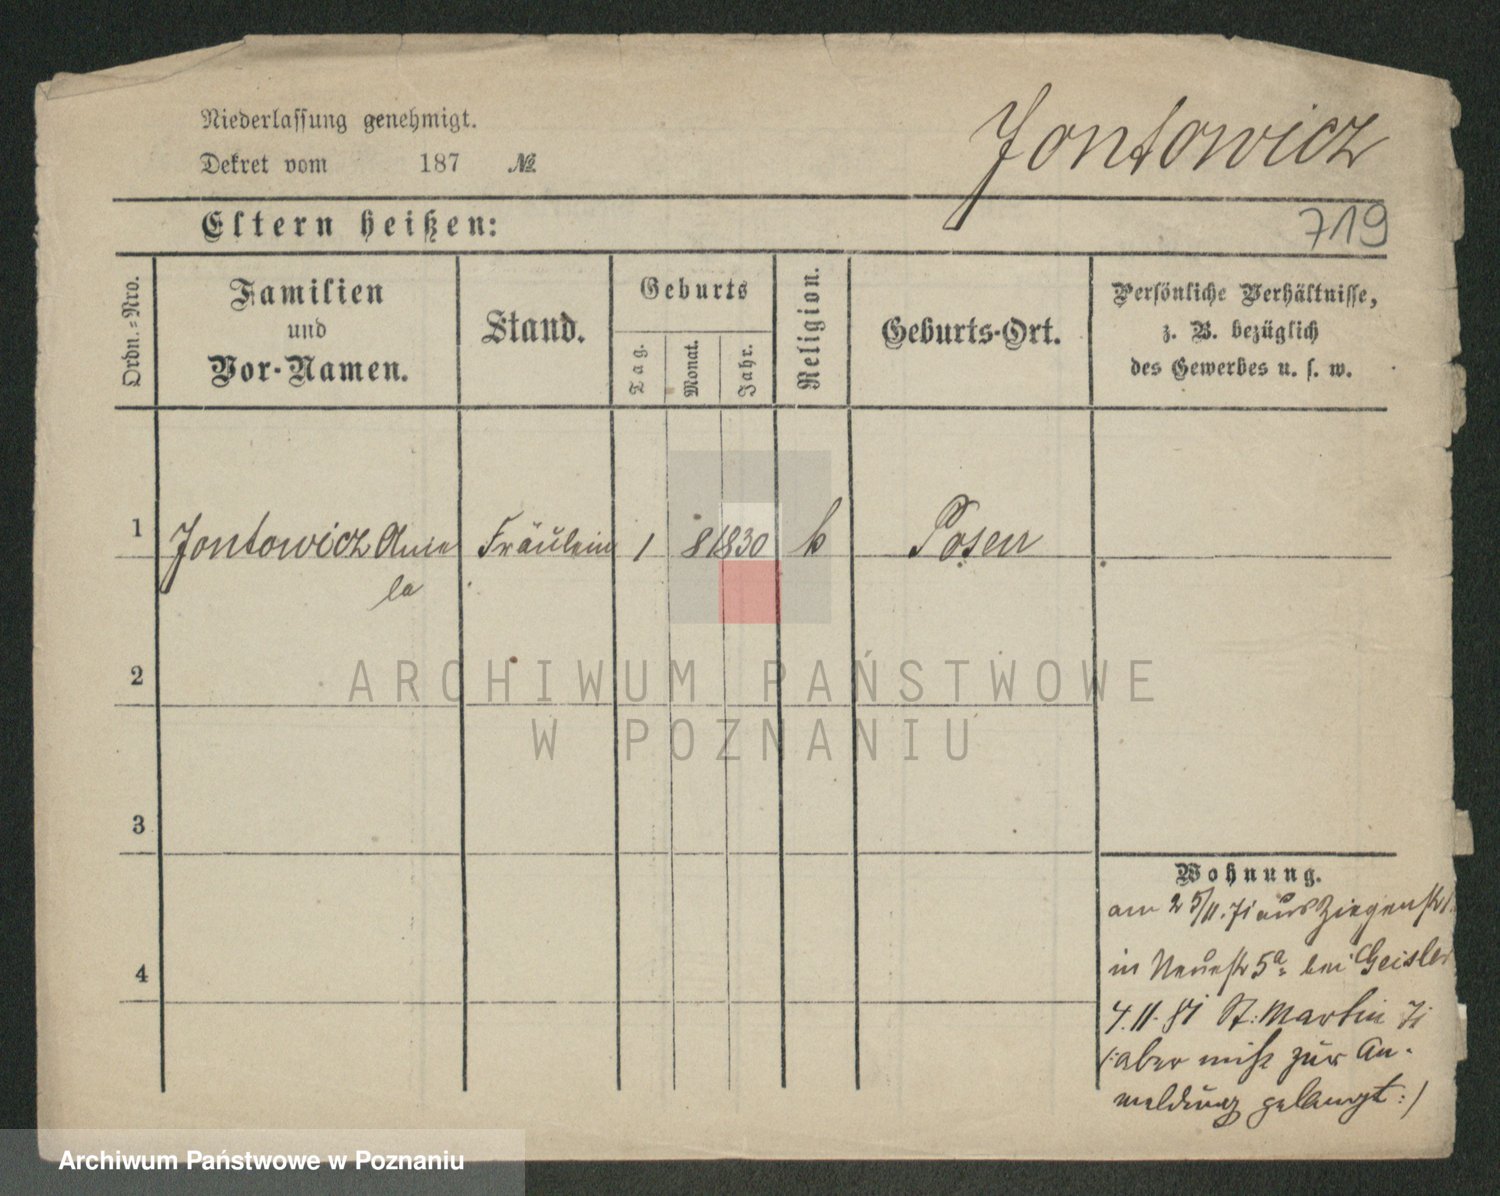 Niederlassung genehmigt.
Dekret vom 187 №
Jontowicz
719
Eltern heißen:
Ordn.-Nro.
Familien
und
Vor-Namen.
Stand.
Geburts
Tag.
Monat.
Jahr.
Religion.
Geburts-Ort.
Persönliche Verhältnisse,
z. B. bezüglich
des Gewerbes u. s. w.
1 Jontowicz Ame Fräulein 1 8 1830 k Posen
la
2
3
4
Wohnung.
am 25/11.71 aus Ziegenstr
in Neuestr 5a bei Geisler
4.11.81 St. Martin 71
(: aber nicht zur An-
meldung gelangt :)
ARCHIWUM PAŃSTWOWE
W POZNANIU
Archiwum Państwowe w Poznaniu